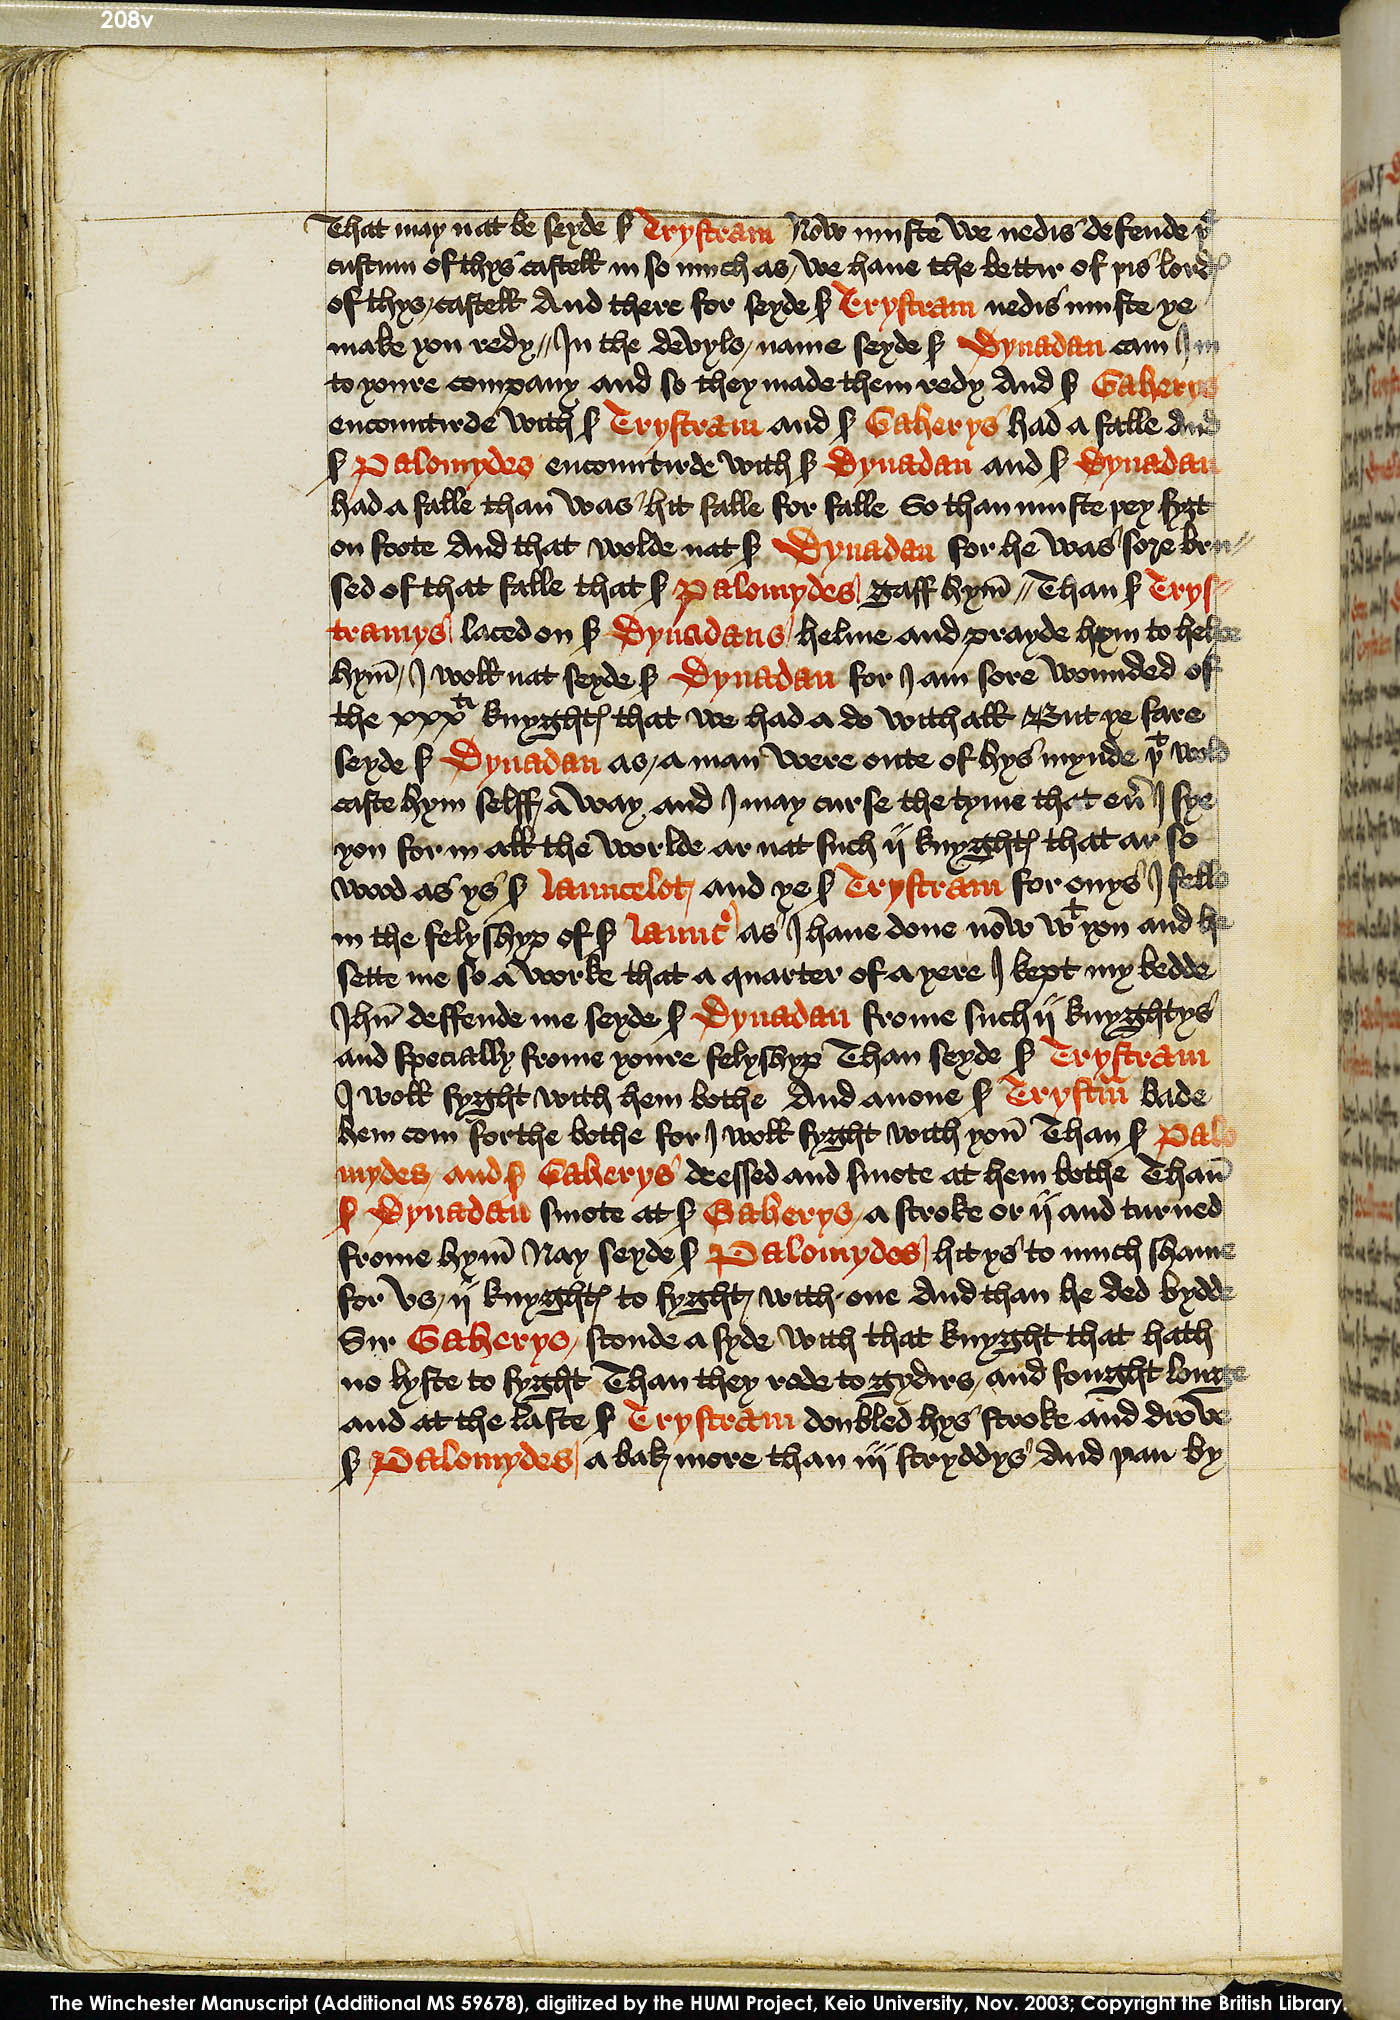 208v
That may nat be seyde ẜ Trystram Now muste we nedis defende þe
custum of thys castell in so much as we haue the bettir of þis lordꝭ
of thys castell And there for seyde ẜ Trystram nedis muste ye
make you redy // In the devyls name seyde ẜ Dynadan cam I in
to youre company and so they made them redy And ẜ Gaherys
encountirde with ẜ Trystram and ẜ Gaherys had a falle And
ẜ Palomydes encountirde with ẜ Dynadan and ẜ Dynadan
had a falle than̄ was hit falle for falle So than muste þey fyȝt
on foote And that wolde nat ẜ Dynadan for he was sore bru//
sed of that falle that ẜ Palomydes gaff hym̄ // Than ẜ Trys-
tramys laced on ẜ Dynadans helme and prayde hym to helpe
hym̄ / I woll nat seyde ẜ Dynadan for I am sore wounded of
the xxxti knyghtꝭ that we had a do with all But ye fare
seyde ẜ Dynadan as a man were oute of hys mynde þt wold
caste hym selff a way and I may curse the tyme that eu̾ I sye
you for in all the worlde ar nat such ij knyghtꝭ that ar so
wood as ys ẜ Launcelot and ye ẜ Trystram for onys I felle
in the felyshyp of ẜ Launc̾ as I haue done now wt you and he
sette me so a worke that a quarter of a yere I kept my bedde
Jhū deffende me seyde ẜ Dynadan frome such ij knyghtys
and specially frome youre felyshyp Than seyde ẜ Trystram
I woll fyght with hem bothe And anone ẜ Trystm̄ bade
hem com forthe bothe for I woll fyght with yoū Than ẜ Palo
mydes and ẜ Gaherys dressed and smote at hem bothe Than̄
ẜ Dynadan smote at ẜ Gaherys a stroke or ij and turned
frome hym̄ Nay seyde ẜ Palomydes hit ys to much shame
for vs ij knyghtꝭ to fyght with one And than he ded bydde
Sir Gaherys stonde a syde with that knyght that hath
no lyste to fyght Than they rode to gydirs and fought longe
and at the laste ẜ Trystram doubled hys stroke and drove
ẜ Palomydes a bak more than iij stryddys And þan by
The Winchester Manuscript (Additional MS 59678), digitized by the HUMI Project, Keio University, Nov. 2003; Copyright the British Library.